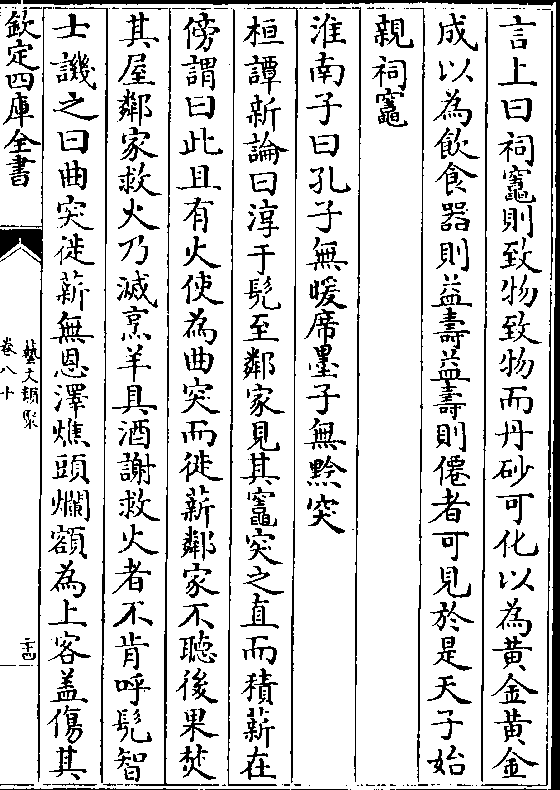 言上曰祠竈則致物致物而丹砂可化以為黄金黄金
成以為飲食器則益壽益壽則僊者可見於是天子始
親祠竈
淮南子曰孔子無暖席墨子無黔突
桓譚新論曰淳于髠至鄰家見其竈突之直而積薪在
傍謂曰此且有火使為曲突而徙薪鄰家不聽後果焚
其屋鄰家救火乃滅烹羊具酒謝救火者不肯呼髠智
士譏之曰曲突徙薪無恩澤燋頭爛額為上客盖傷其
欽定四庫全書
藝文類聚
卷八十
二十四